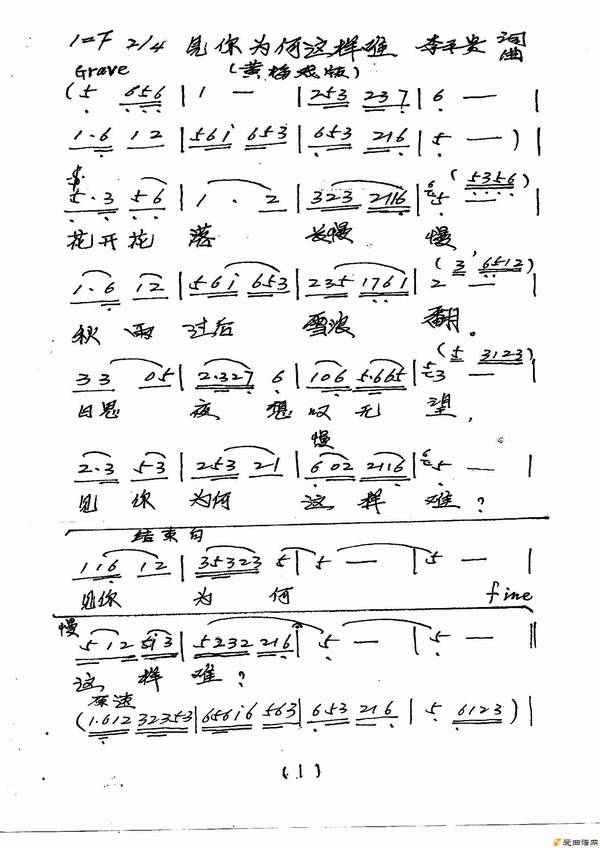 1=F 2/4 见你为何这样难 李平贵 词曲
Grave (黄梅戏版)
(5 656 | 1 — | 253 237 | 6 — |
1·6 12 | 561 653 | 653 216 | 5 — ) |
5·3 56 | 1 · 2 | 323 2116 | 5 — (5356) |
花开花 落 长慢 慢
1·6 12 | 561 653 | 235 1761 | 2 — (3 6512) |
秋雨 过后 雪浪 翻。
33 05 | 2·327 6 | 106 5·665 | 3 — (5 3123) |
日思 夜想 叹无 望,
慢
2·3 53 | 253 21 | 602 2116 | 5 — |
见你 为何 这样 难?
结束句
116 12 | 35323 5 | 5 — | 5 — |
见你 为何 fine
慢
512 513 | 5232 216 | 5 — | 5 — ‖
这样难?
原速
(1·612 32353 | 65616 563 | 653 216 | 5 6123 ) |
(1)
爱曲谱网